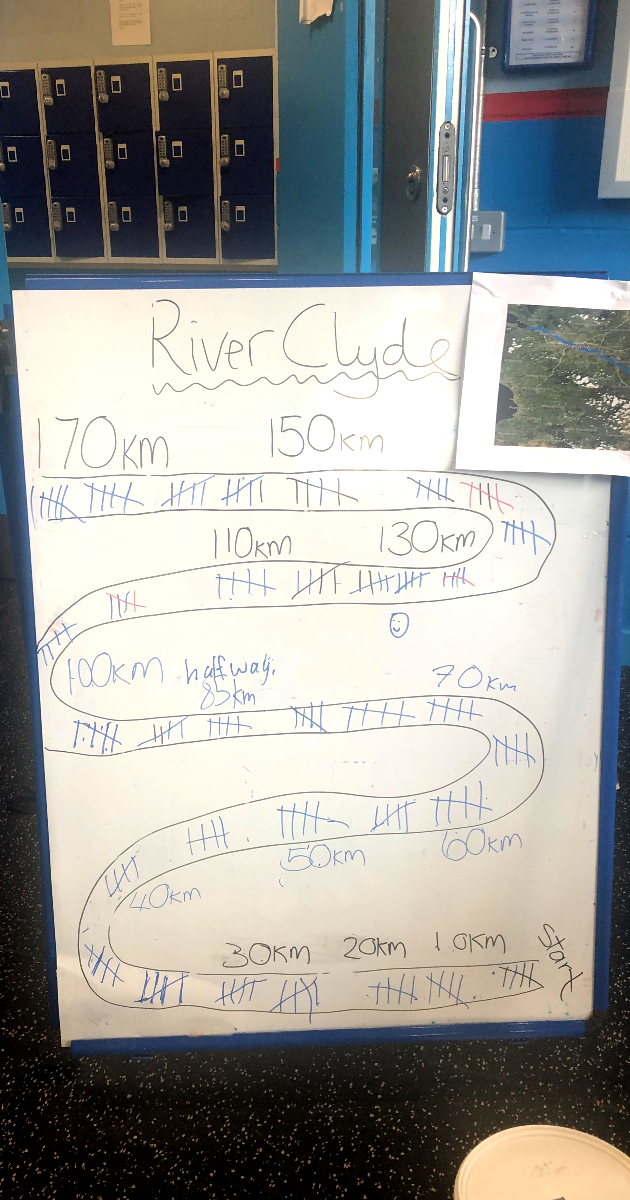 River Clyde
170km 150km
110km 130km
100km halfway.
85km
70km
60km
50km
40km
30km 20km 10km Start